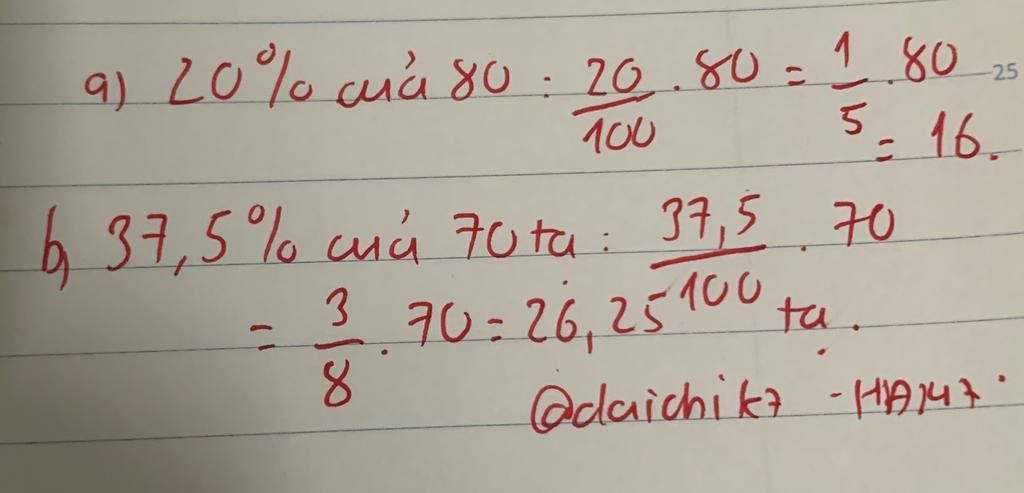 a) 20% của 80 : 20/100 . 80 = 1/5 . 80
25
= 16.
b, 37,5% của 70 tạ : 37,5/100 . 70
= 3/8 . 70 = 26,25 tạ.
@daichik7 - HA